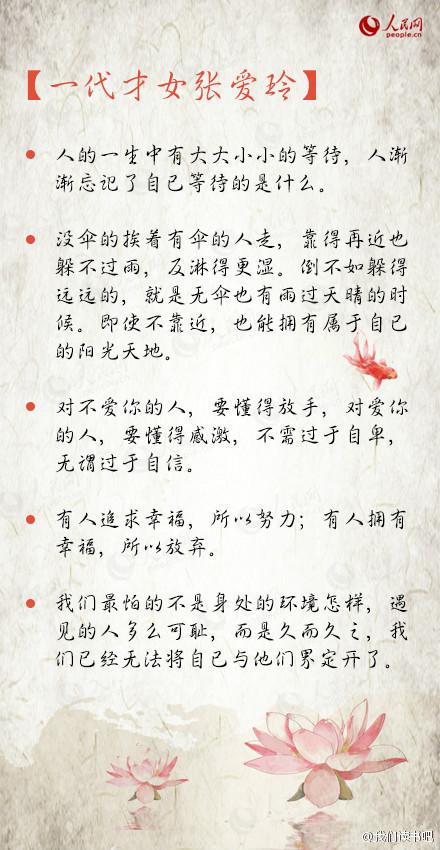 人民网
people.cn
【一代才女张爱玲】
人的一生中有大大小小的等待，人渐
渐忘记了自已等待的是什么。
没伞的挨着有伞的人走，靠得再近也
躲不过雨，反淋得更湿。倒不如躲得
远远的，就是无伞也有雨过天晴的时
候。即使不靠近，也能拥有属于自已
的阳光天地。
对不爱你的人，要懂得放手，对爱你
的人，要懂得感激，不需过于自卑，
无谓过于自信。
有人追求幸福，所以努力；有人拥有
幸福，所以放弃。
我们最怕的不是身处的环境怎样，遇
见的人多么可耻，而是久而久之，我
们已经无法将自已与他们界定开了。
@我们读书吧